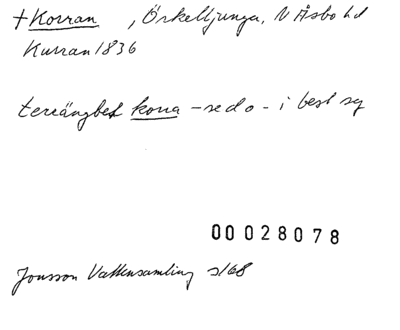 + Korran , Örkelljunga, N Åsbo hd
Kurran 1836
terrängbet korra - se d o - i best sg
00028078
Jonsson Vattensamling s 168